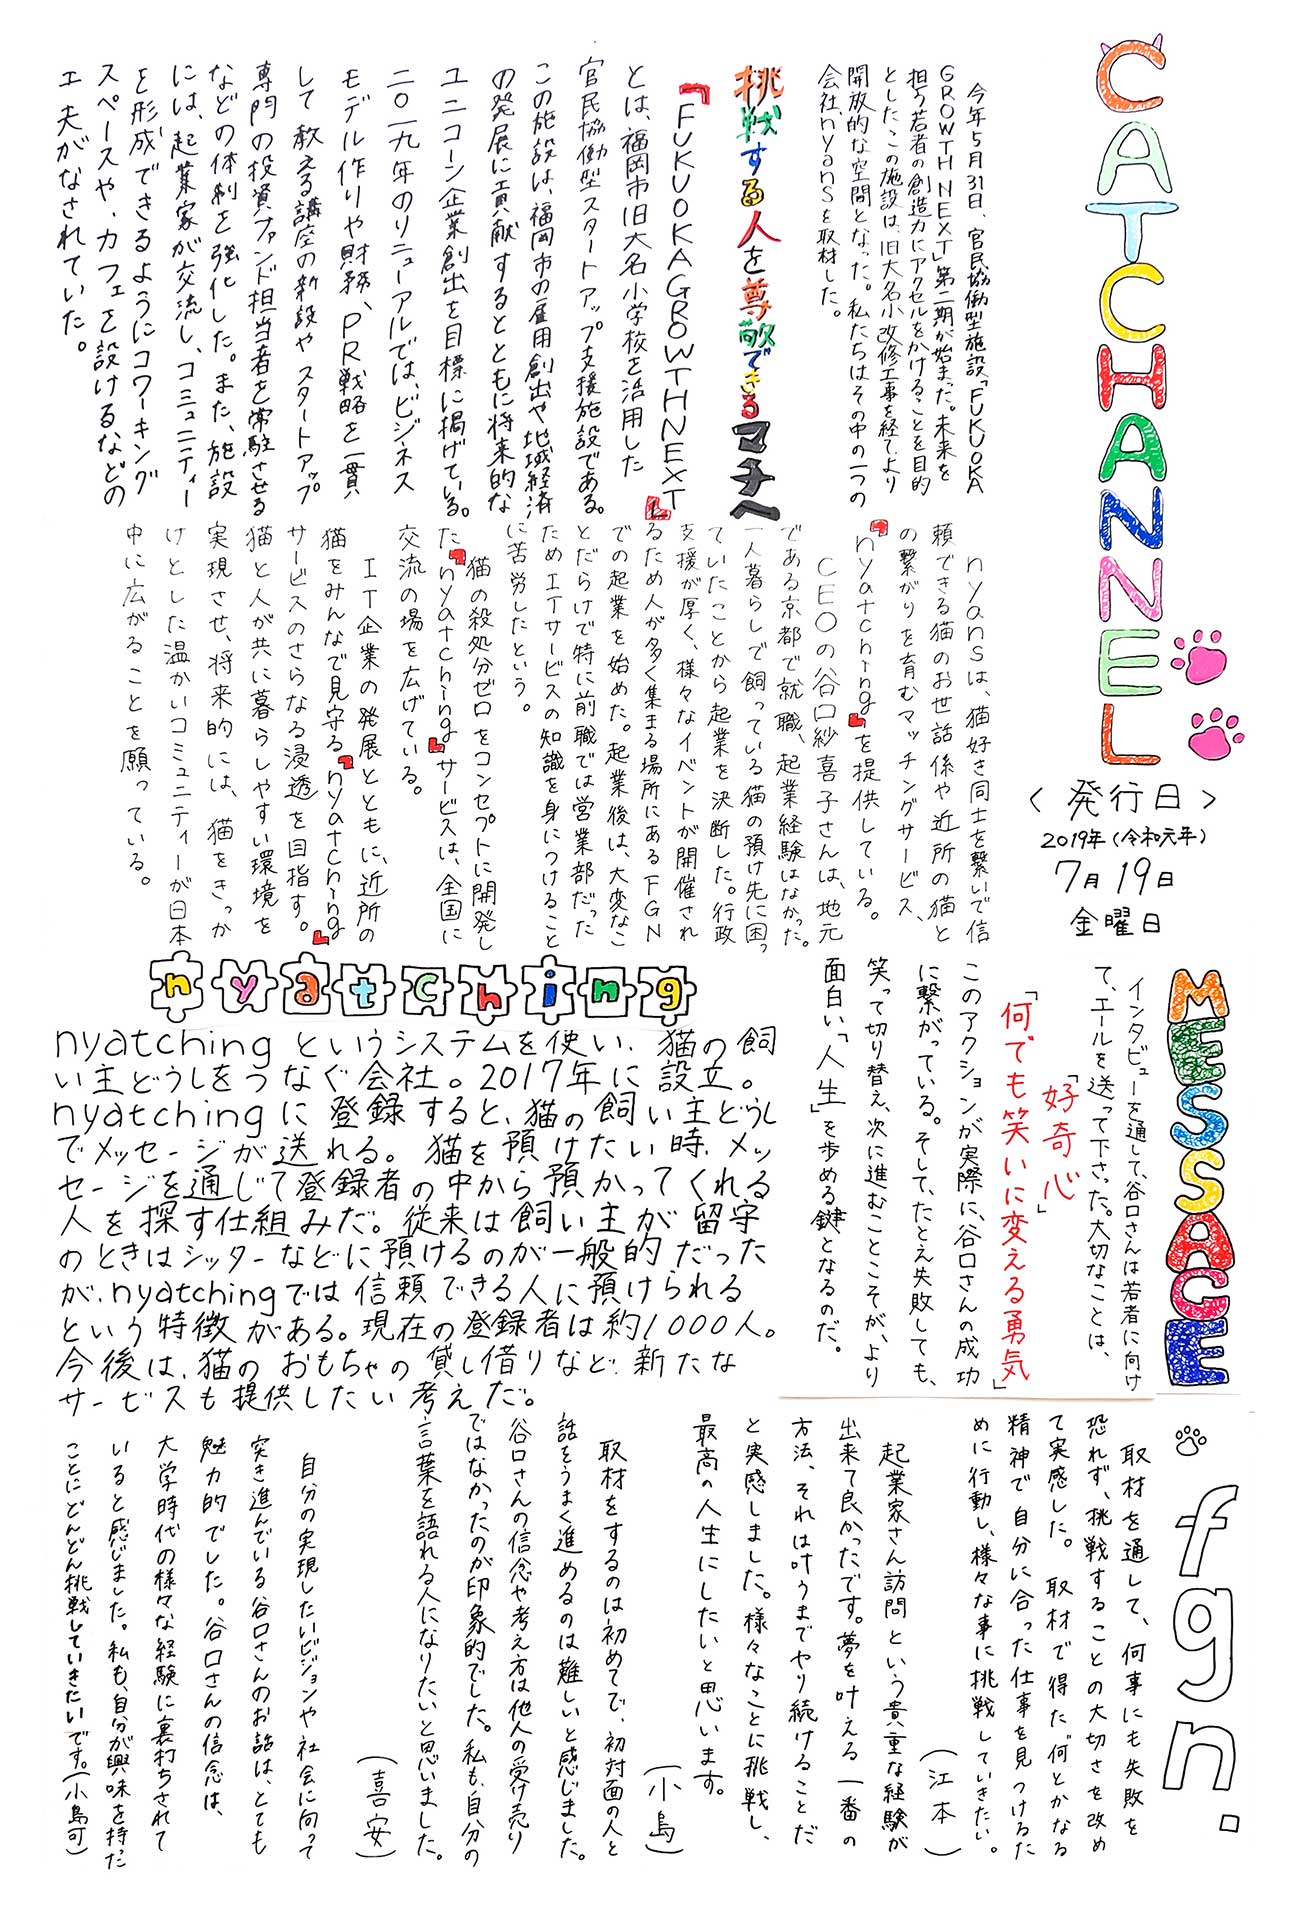 CATCHANNEL
<発行日>
2019年(令和元年)
7月19日
金曜日
今年5月31日、官民協働型施設「FUKUOKA
GROWTH NEXT」第二期が始まった。未来を
担う若者の創造力にアクセルをかけることを目的
としたこの施設は、旧大名小改修工事を経て、より
開放的な空間となった。私たちはその中の一つの
会社、nyansを取材した。
挑戦する人を尊敬できるマチへ
『FUKUOKAGROWTHNEXT』
とは、福岡市旧大名小学校を活用した
官民協働型スタートアップ支援施設である。
この施設は、福岡市の雇用創出や地域経済
の発展に貢献するとともに将来的な
ユニコーン企業創出を目標に掲げている。
二〇一九年のリニューアルでは、ビジネス
モデル作りや財務、PR戦略を一貫
して教える講座の新設やスタートアップ
専門の投資ファンド担当者を常駐させる
などの体制を強化した。また、施設
には、起業家が交流し、コミュニティー
を形成できるようにコワーキング
スペースや、カフェを設けるなどの
工夫がなされていた。
nyansは、猫好き同士を繋いで信
頼できる猫のお世話係や近所の猫と
の繋がりを育むマッチングサービス、
『nyatching』を提供している。
CEOの谷口紗喜子さんは、地元
である京都で就職、起業経験はなかった。
一人暮らしで飼っている猫の預け先に困っ
ていたことから起業を決断した。行政
支援が厚く、様々なイベントが開催され
るため人が多く集まる場所にあるFGN
での起業を始めた。起業後は、大変なこ
とだらけで特に前職では営業部だった
ためITサービスの知識を身につけること
に苦労したという。
猫の殺処分ゼロをコンセプトに開発し
た『nyatching』サービスは、全国に
交流の場を広げている。
IT企業の発展とともに、近所の
猫をみんなで見守る『nyatching』
サービスのさらなる浸透を目指す。
猫と人が共に暮らしやすい環境を
実現させ、将来的には、猫をきっか
けとした温かいコミュニティーが日本
中に広がることを願っている。
MESSAGE
インタビューを通して、谷口さんは若者に向け
て、エールを送って下さった。大切なことは、
「好奇心」
「何でも笑いに変える勇気」
このアクションが実際に、谷口さんの成功
に繋がっている。そして、たとえ失敗しても、
笑って切り替え、次に進むことこそが、より
面白い「人生」を歩める鍵となるのだ。
nyatching
nyatchingというシステムを使い、猫の飼
い主どうしをつなぐ会社。2017年に設立。
nyatchingに登録すると、猫の飼い主どうし
でメッセージが送れる。猫を預けたい時、メッ
セージを通じて登録者の中から預かってくれる
人を探す仕組みだ。従来は飼い主が留守
のときはシッターなどに預けるのが一般的だった
が、nyatchingでは信頼できる人に預けられる
という特徴がある。現在の登録者は約1000人。
今後は、猫のおもちゃの貸し借りなど、新たな
サービスも提供したい考えだ。
fgn.
取材を通して、何事にも失敗を
恐れず、挑戦することの大切さを改め
て実感した。取材で得た「何とかなる
精神で自分に合った仕事を見つけるた
めに行動し、様々な事に挑戦していきたい。
(江本)
起業家さん訪問という貴重な経験が
出来て良かったです。夢を叶える一番の
方法、それは叶うまでやり続けることだ
と実感しました。様々なことに挑戦し、
最高の人生にしたいと思います。
(小島)
取材をするのは初めてで、初対面の人と
話をうまく進めるのは難しいと感じました。
谷口さんの信念や考え方は他人の受け売り
ではなかったのが印象的でした。私も、自分の
言葉を語れる人になりたいと思いました。
(喜安)
自分の実現したいビジョンや社会に向って
突き進んでいる谷口さんのお話は、とても
魅力的でした。谷口さんの信念は、
大学時代の様々な経験に裏打ちされて
いると感じました。私も、自分が興味を持った
ことにどんどん挑戦していきたいです。(小島可)